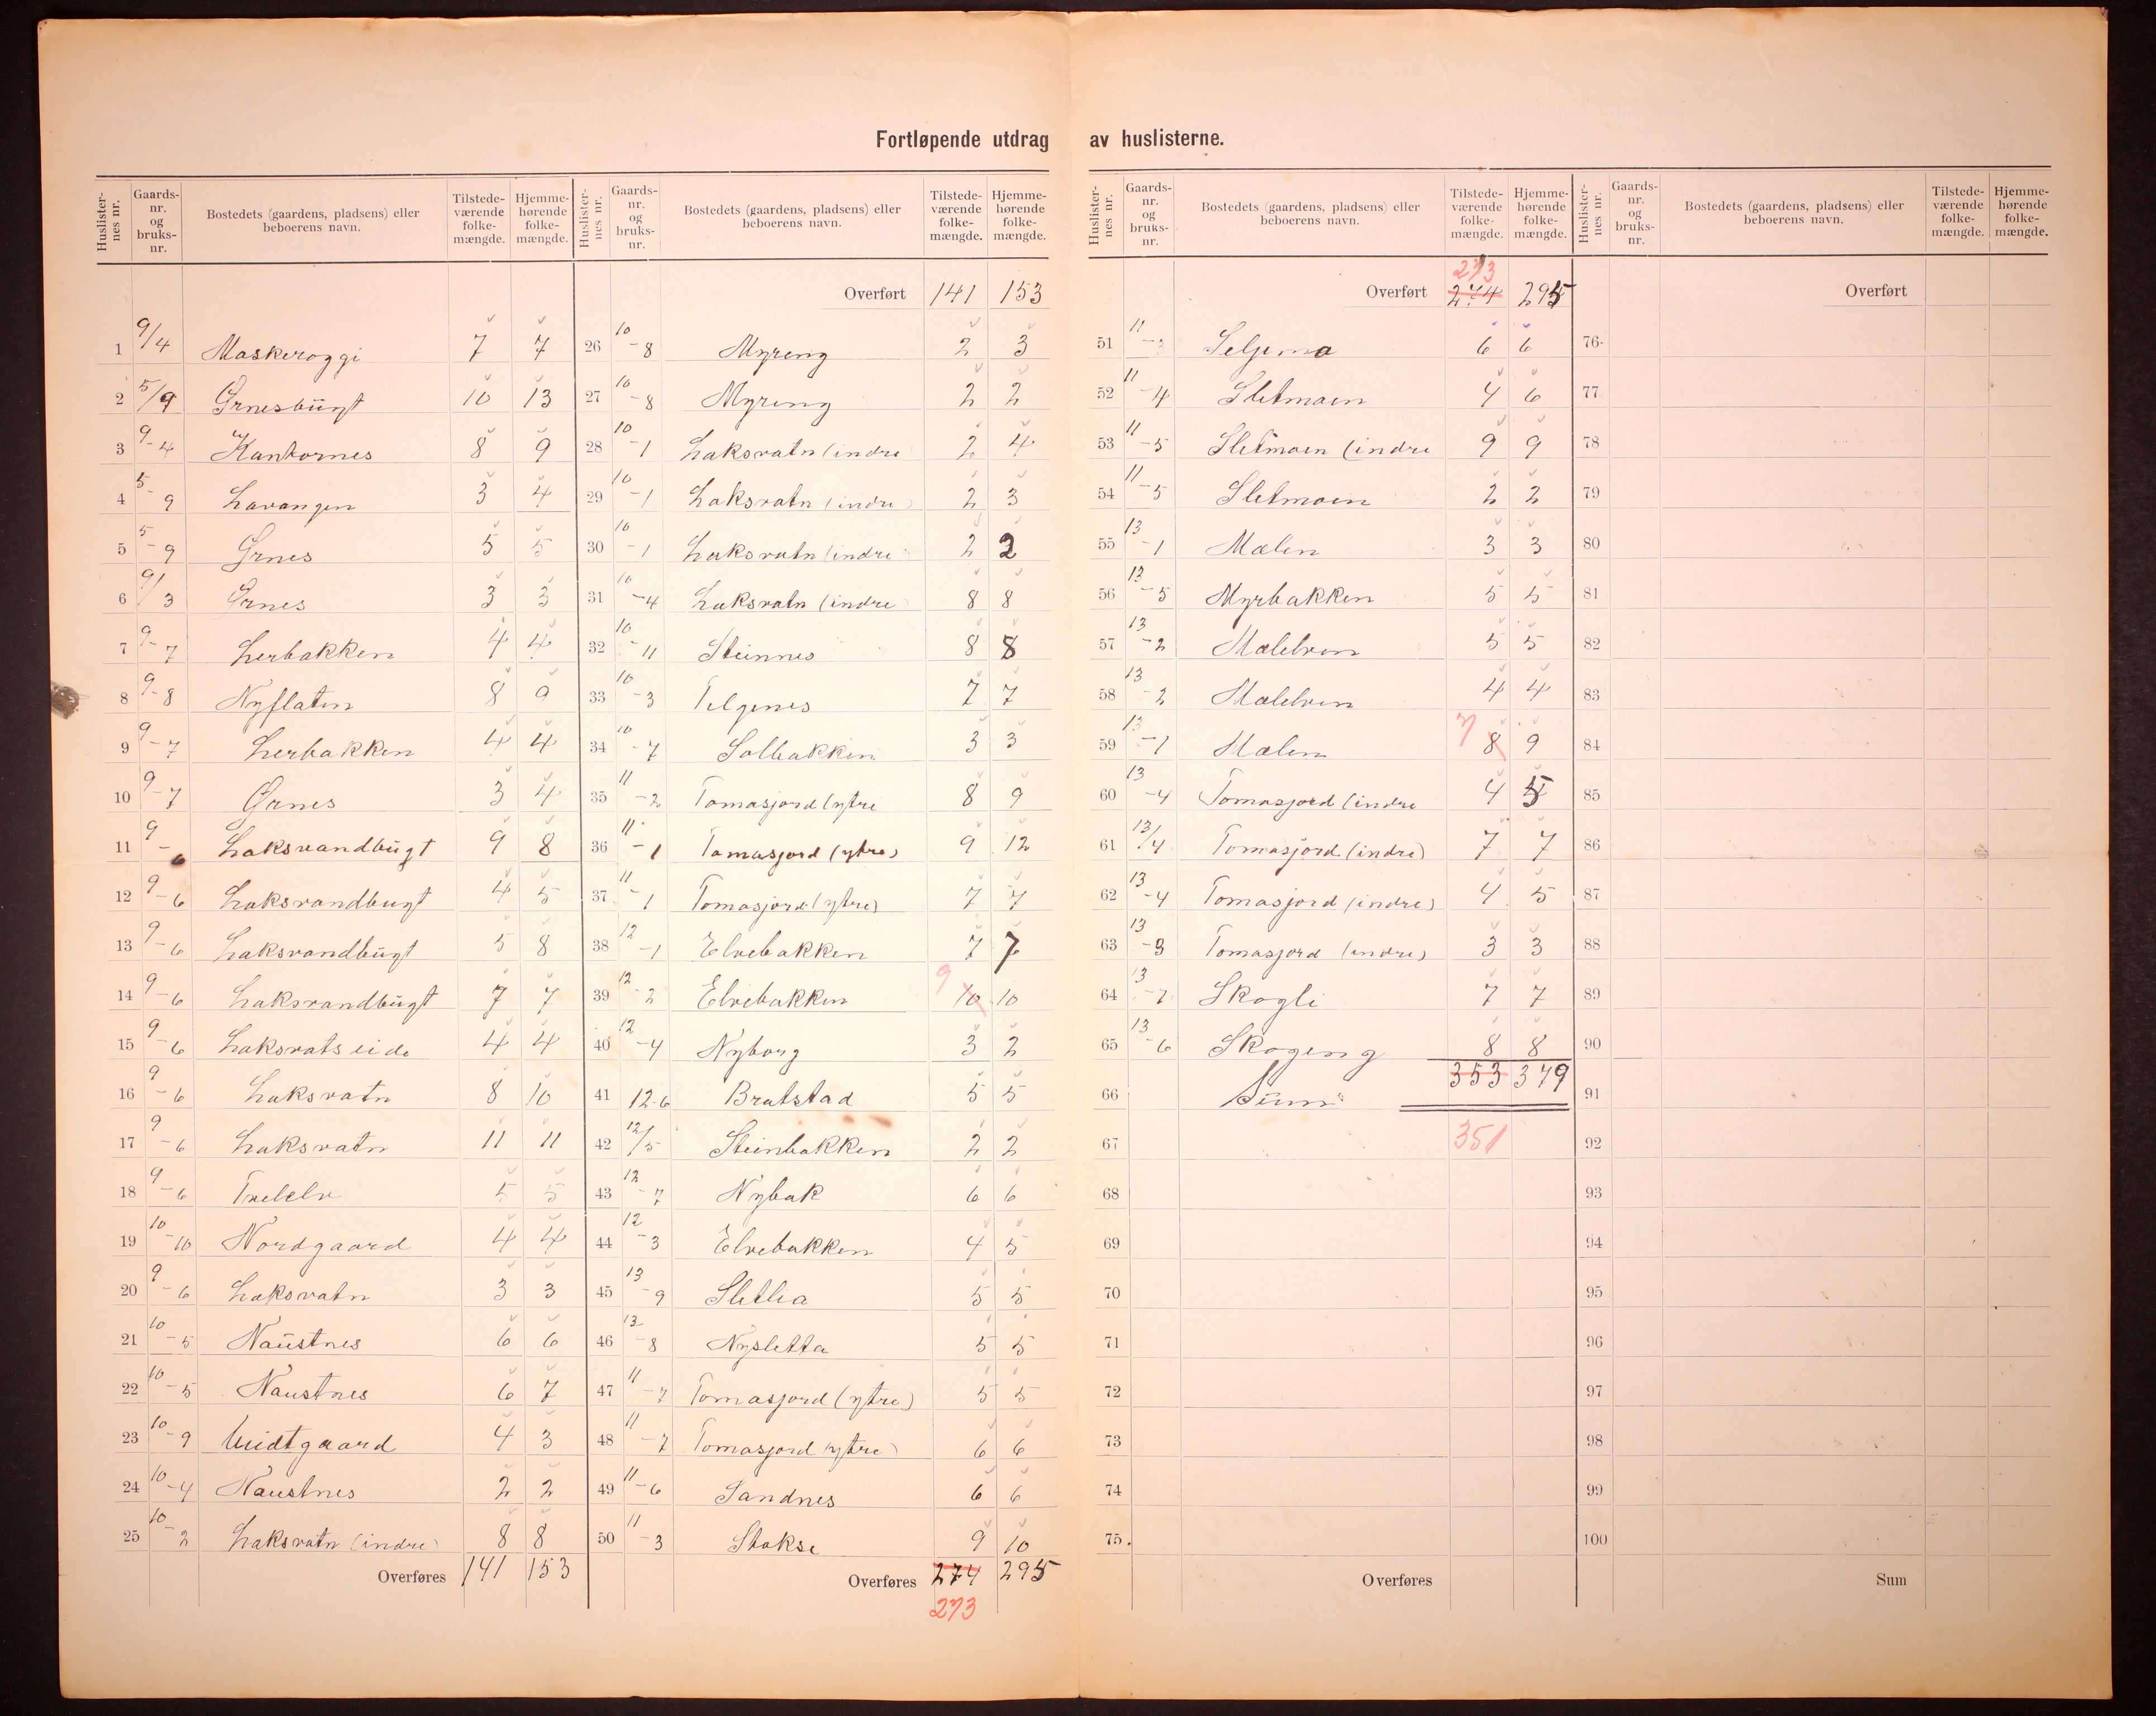 Fortløpende utdrag av huslisterne.
Huslisternes nr. Gaards-nr. og bruks-nr. Bostedets (gaardens, pladsens) eller beboerens navn. Tilstedeværende folkemængde. Hjemmehørende folkemængde.
1 9/4 Maskeroggi 7 7
2 5/9 Grnesbügt 10 13
3 9-4 Kantornes 8 9
4 5-9 Lavangen 3 4
5 5-9 Grnes 5 5
6 9/3 Grnes 3 3
7 9-7 Lerbakken 4 4
8 9-8 Nyflaten 8 9
9 9-7 Lerbakken 4 4
10 9-7 Grnes 3 4
11 9-6 Laksvandbügt 9 8
12 9-6 Laksvandbugt 4 5
13 9-6 Laksvandbügt 5 8
14 9-6 Laksvandbügt 7 7
15 9-6 Laksvatseide 4 4
16 9-6 Laksvatn 8 10
17 9-6 Laksvatn 11 11
18 9-6 Trelelv 5 5
19 10-10 Nordgaard 4 4
20 9-6 Laksvatn 3 3
21 10-5 Naüstnes 6 6
22 10-5 Naustnes 6 7
23 10-9 Midtgaard 4 3
24 10-4 Naustnes 2 2
25 10-2 Laksvatn (indre) 8 8
Overføres 141 153
Huslisternes nr. Gaards-nr. og bruks-nr. Bostedets (gaardens, pladsens) eller beboerens navn. Tilstedeværende folkemængde. Hjemmehørende folkemængde.
Overført 141 153
26 10-8 Myreng 2 3
27 10-8 Myreng 2 2
28 10-1 Laksvatn (indre 2 4
29 10-1 Laksvatn (indre) 2 3
30 10-1 Laksvatn (indre 2 2
31 10-4 Laksvatn (indre 8 8
32 10-11 Steinnes 8 8
33 10-3 Telgenes 7 7
34 10-7 Solbakken 3 3
35 11-2 Tomasjord (ytre 8 9
36 11-1 Tomasjord (ytre) 9 12
37 11-1 Tomasjord (ytre) 7 7
38 12-1 Elvebakken 7 7
39 12-2 Elvebakken 9 10 10
40 12-4 Nyborg 3 2
41 12-6 Bratstad 5 5
42 12/5 Steinbakken 2 2
43 12-7 Nybak 6 6
44 12-3 Elvebakken 4 5
45 13-9 Sletlia 5 5
46 13-8 Nysletta 5 5
47 11-7 Tomasjord (ytre) 5 5
48 11-7 Tomasjord (ytre) 6 6
49 11-6 Sandnes 6 6
50 11-3 Stakse 9 10
Overføres 274 295
273
Huslisternes nr. Gaards-nr. og bruks-nr. Bostedets (gaardens, pladsens) eller beboerens navn. Tilstedeværende folkemængde. Hjemmehørende folkemængde.
273
Overført 274 295
51 11-3 Seljemo 6 6
52 11-4 Sletmoen 4 6
53 11-5 Sletmoen (indre 9 9
54 11-5 Sletmoen 2 2
55 13-1 Mælen 3 3
56 13-5 Myrbakken 5 5
57 13-2 Mælelven 5 5
58 13-2 Mælelven 4 4
59 13-1 Mælen 7 8 9
60 13-4 Tomasjord (indre 4 5
61 13/4 Tomasjord (indre) 7 7
62 13-4 Tomasjord (indre) 4 5
63 13-3 Tomasjord (indre) 3 3
64 13-7 Skogli 7 7
65 13-6 Skogeng 8 8
66 Süm 353 379
67 351
68
69
70
71
72
73
74
75
Overføres
Huslisternes nr. Gaards-nr. og bruks-nr. Bostedets (gaardens, pladsens) eller beboerens navn. Tilstedeværende folkemængde. Hjemmehørende folkemængde.
Overført
76
77
78
79
80
81
82
83
84
85
86
87
88
89
90
91
92
93
94
95
96
97
98
99
100
Sum